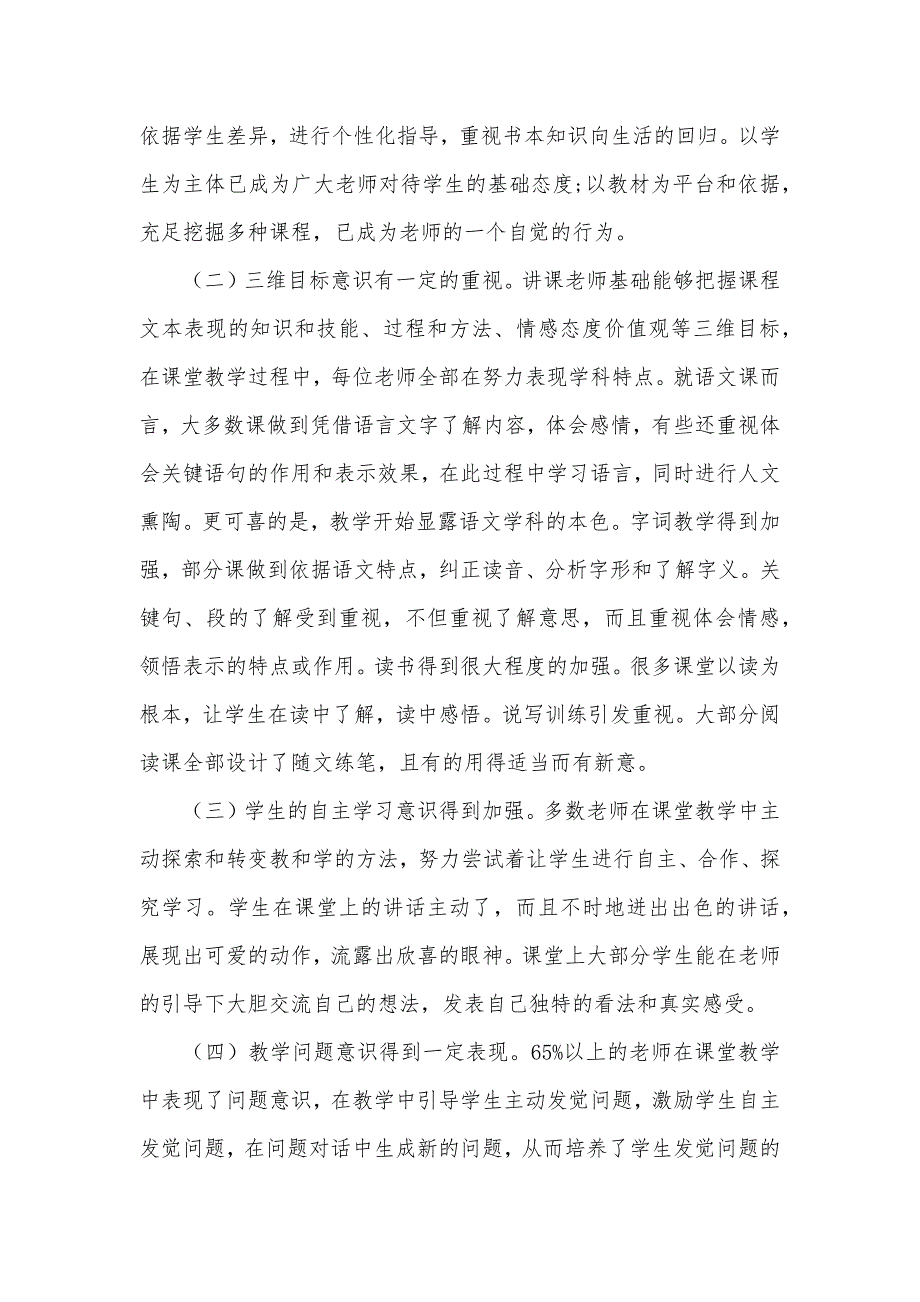 依据学生差异，进行个性化指导，重视书本知识向生活的回归。以学
生为主体已成为广大老师对待学生的基础态度;以教材为平台和依据，
充足挖掘多种课程，已成为老师的一个自觉的行为。
（二）三维目标意识有一定的重视。讲课老师基础能够把握课程
文本表现的知识和技能、过程和方法、情感态度价值观等三维目标，
在课堂教学过程中，每位老师全部在努力表现学科特点。就语文课而
言，大多数课做到凭借语言文字了解内容，体会感情，有些还重视体
会关键语句的作用和表示效果，在此过程中学习语言，同时进行人文
熏陶。更可喜的是，教学开始显露语文学科的本色。字词教学得到加
强，部分课做到依据语文特点，纠正读音、分析字形和了解字义。关
键句、段的了解受到重视，不但重视了解意思，而且重视体会情感，
领悟表示的特点或作用。读书得到很大程度的加强。很多课堂以读为
根本，让学生在读中了解，读中感悟。说写训练引发重视。大部分阅
读课全部设计了随文练笔，且有的用得适当而有新意。
（三）学生的自主学习意识得到加强。多数老师在课堂教学中主
动探索和转变教和学的方法，努力尝试着让学生进行自主、合作、探
究学习。学生在课堂上的讲话主动了，而且不时地迸出出色的讲话，
展现出可爱的动作，流露出欣喜的眼神。课堂上大部分学生能在老师
的引导下大胆交流自己的想法，发表自己独特的看法和真实感受。
（四）教学问题意识得到一定表现。65%以上的老师在课堂教学
中表现了问题意识，在教学中引导学生主动发觉问题，激励学生自主
发觉问题，在问题对话中生成新的问题，从而培养了学生发觉问题的